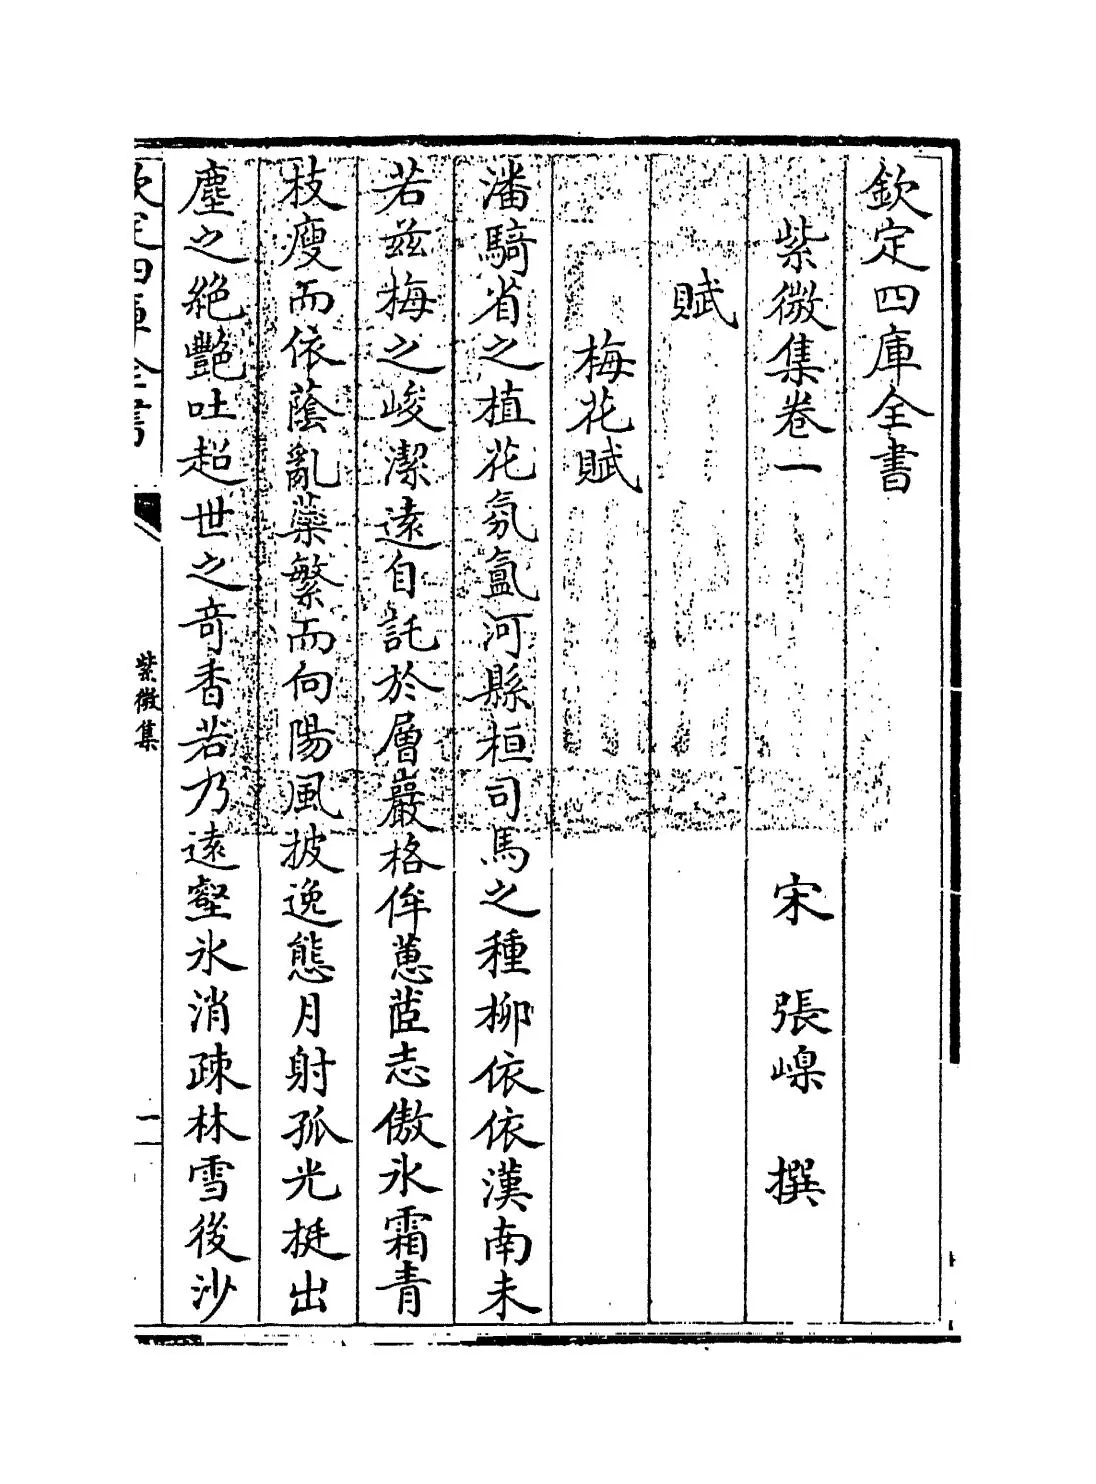 欽定四庫全書
紫微集卷一
宋 張嵲 撰
賦
梅花賦
潘騎省之植花氛氲河縣桓司馬之種柳依依漢南未
若茲梅之峻潔遠自託於層巖格侔蕙茝志傲氷霜青
枝瘦而依蔭亂蘂繁而向陽風披逸態月射孤光挺出
塵之絶艷吐超世之奇香若乃遠壑氷消疎林雪後沙
欽定四庫全書
紫微集
一